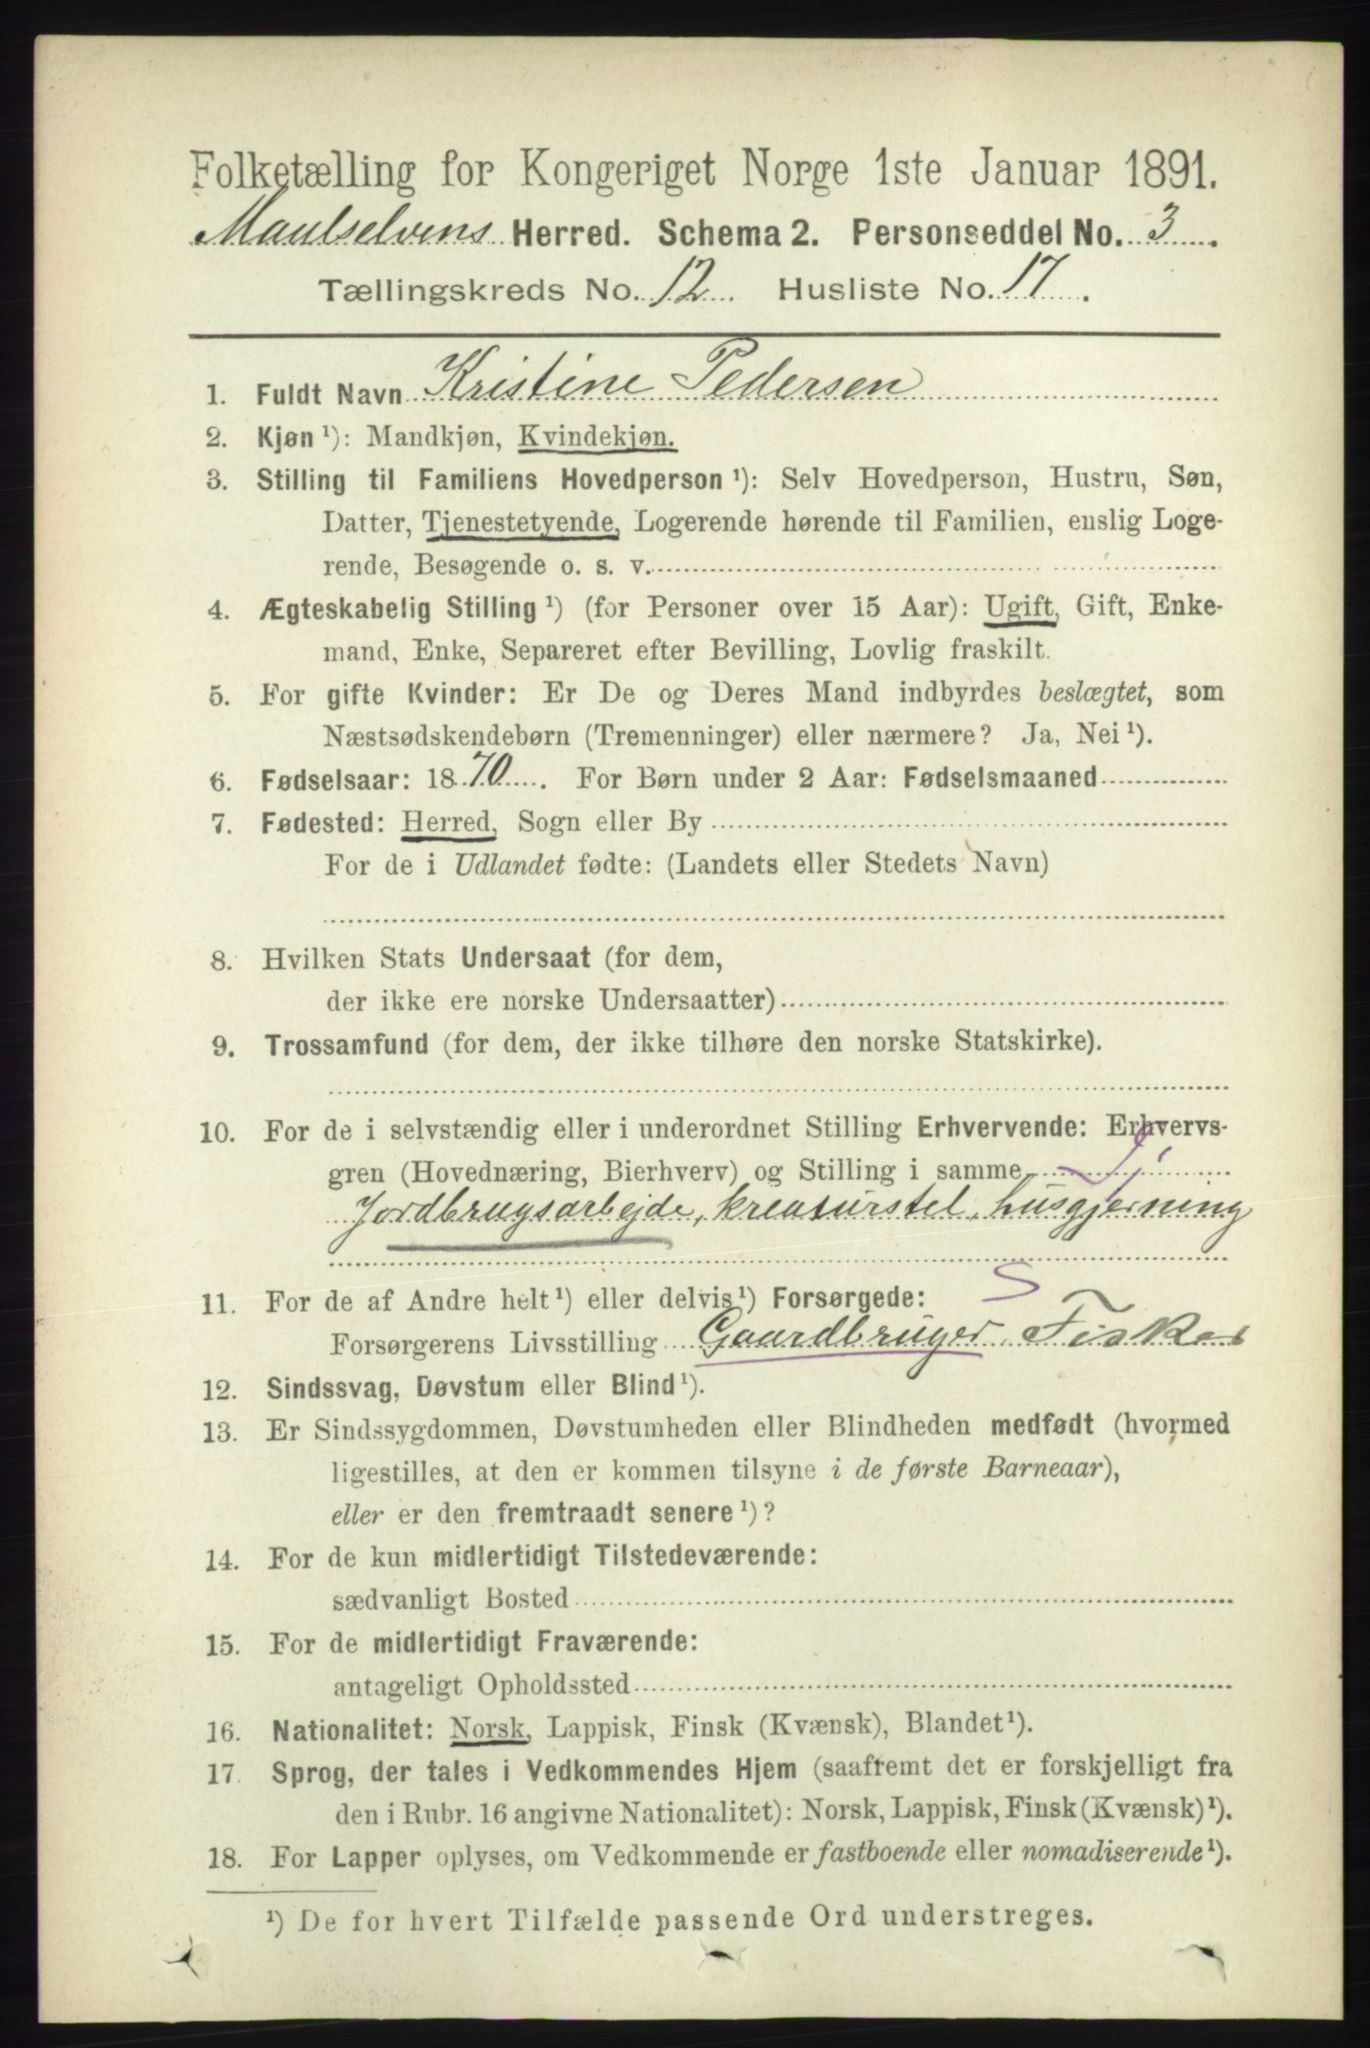 Folketælling for Kongeriget Norge 1ste Januar 1891.
Maalselvens Herred. Schema 2. Personseddel No. 3.
Tællingskreds No. 12. Husliste No. 17.
1. Fuldt Navn Kristine Pedersen
2. Kjøn ¹): Mandkjøn, Kvindekjøn.
3. Stilling til Familiens Hovedperson ¹): Selv Hovedperson, Hustru, Søn,
Datter, Tjenestetyende, Logerende hørende til Familien, enslig Loge-
rende, Besøgende o. s. v.
4. Ægteskabelig Stilling ¹) (for Personer over 15 Aar): Ugift, Gift, Enke-
mand, Enke, Separeret efter Bevilling, Lovlig fraskilt.
5. For gifte Kvinder: Er De og Deres Mand indbyrdes beslægtet, som
Næstsødskendebørn (Tremenninger) eller nærmere? Ja, Nei ¹).
6. Fødselsaar: 1870. For Børn under 2 Aar: Fødselsmaaned
7. Fødested: Herred, Sogn eller By
For de i Udlandet fødte: (Landets eller Stedets Navn)
8. Hvilken Stats Undersaat (for dem,
der ikke ere norske Undersaatter)
9. Trossamfund (for dem, der ikke tilhøre den norske Statskirke).
10. For de i selvstændig eller i underordnet Stilling Erhvervende: Erhvervs-
gren (Hovednæring, Bierhverv) og Stilling i samme Tj
Jordbrugsarbejde, kreaturstel, husgjerning
11. For de af Andre helt ¹) eller delvis ¹) Forsørgede: S
Forsørgerens Livsstilling Gaardbruger. Fisker
12. Sindssvag, Døvstum eller Blind ¹).
13. Er Sindssygdommen, Døvstumheden eller Blindheden medfødt (hvormed
ligestilles, at den er kommen tilsyne i de første Barneaar),
eller er den fremtraadt senere ¹)?
14. For de kun midlertidigt Tilstedeværende:
sædvanligt Bosted
15. For de midlertidigt Fraværende:
antageligt Opholdssted
16. Nationalitet: Norsk, Lappisk, Finsk (Kvænsk), Blandet ¹).
17. Sprog, der tales i Vedkommendes Hjem (saafremt det er forskjelligt fra
den i Rubr. 16 angivne Nationalitet): Norsk, Lappisk, Finsk (Kvænsk) ¹).
18. For Lapper oplyses, om Vedkommende er fastboende eller nomadiserende ¹).
¹) De for hvert Tilfælde passende Ord understreges.